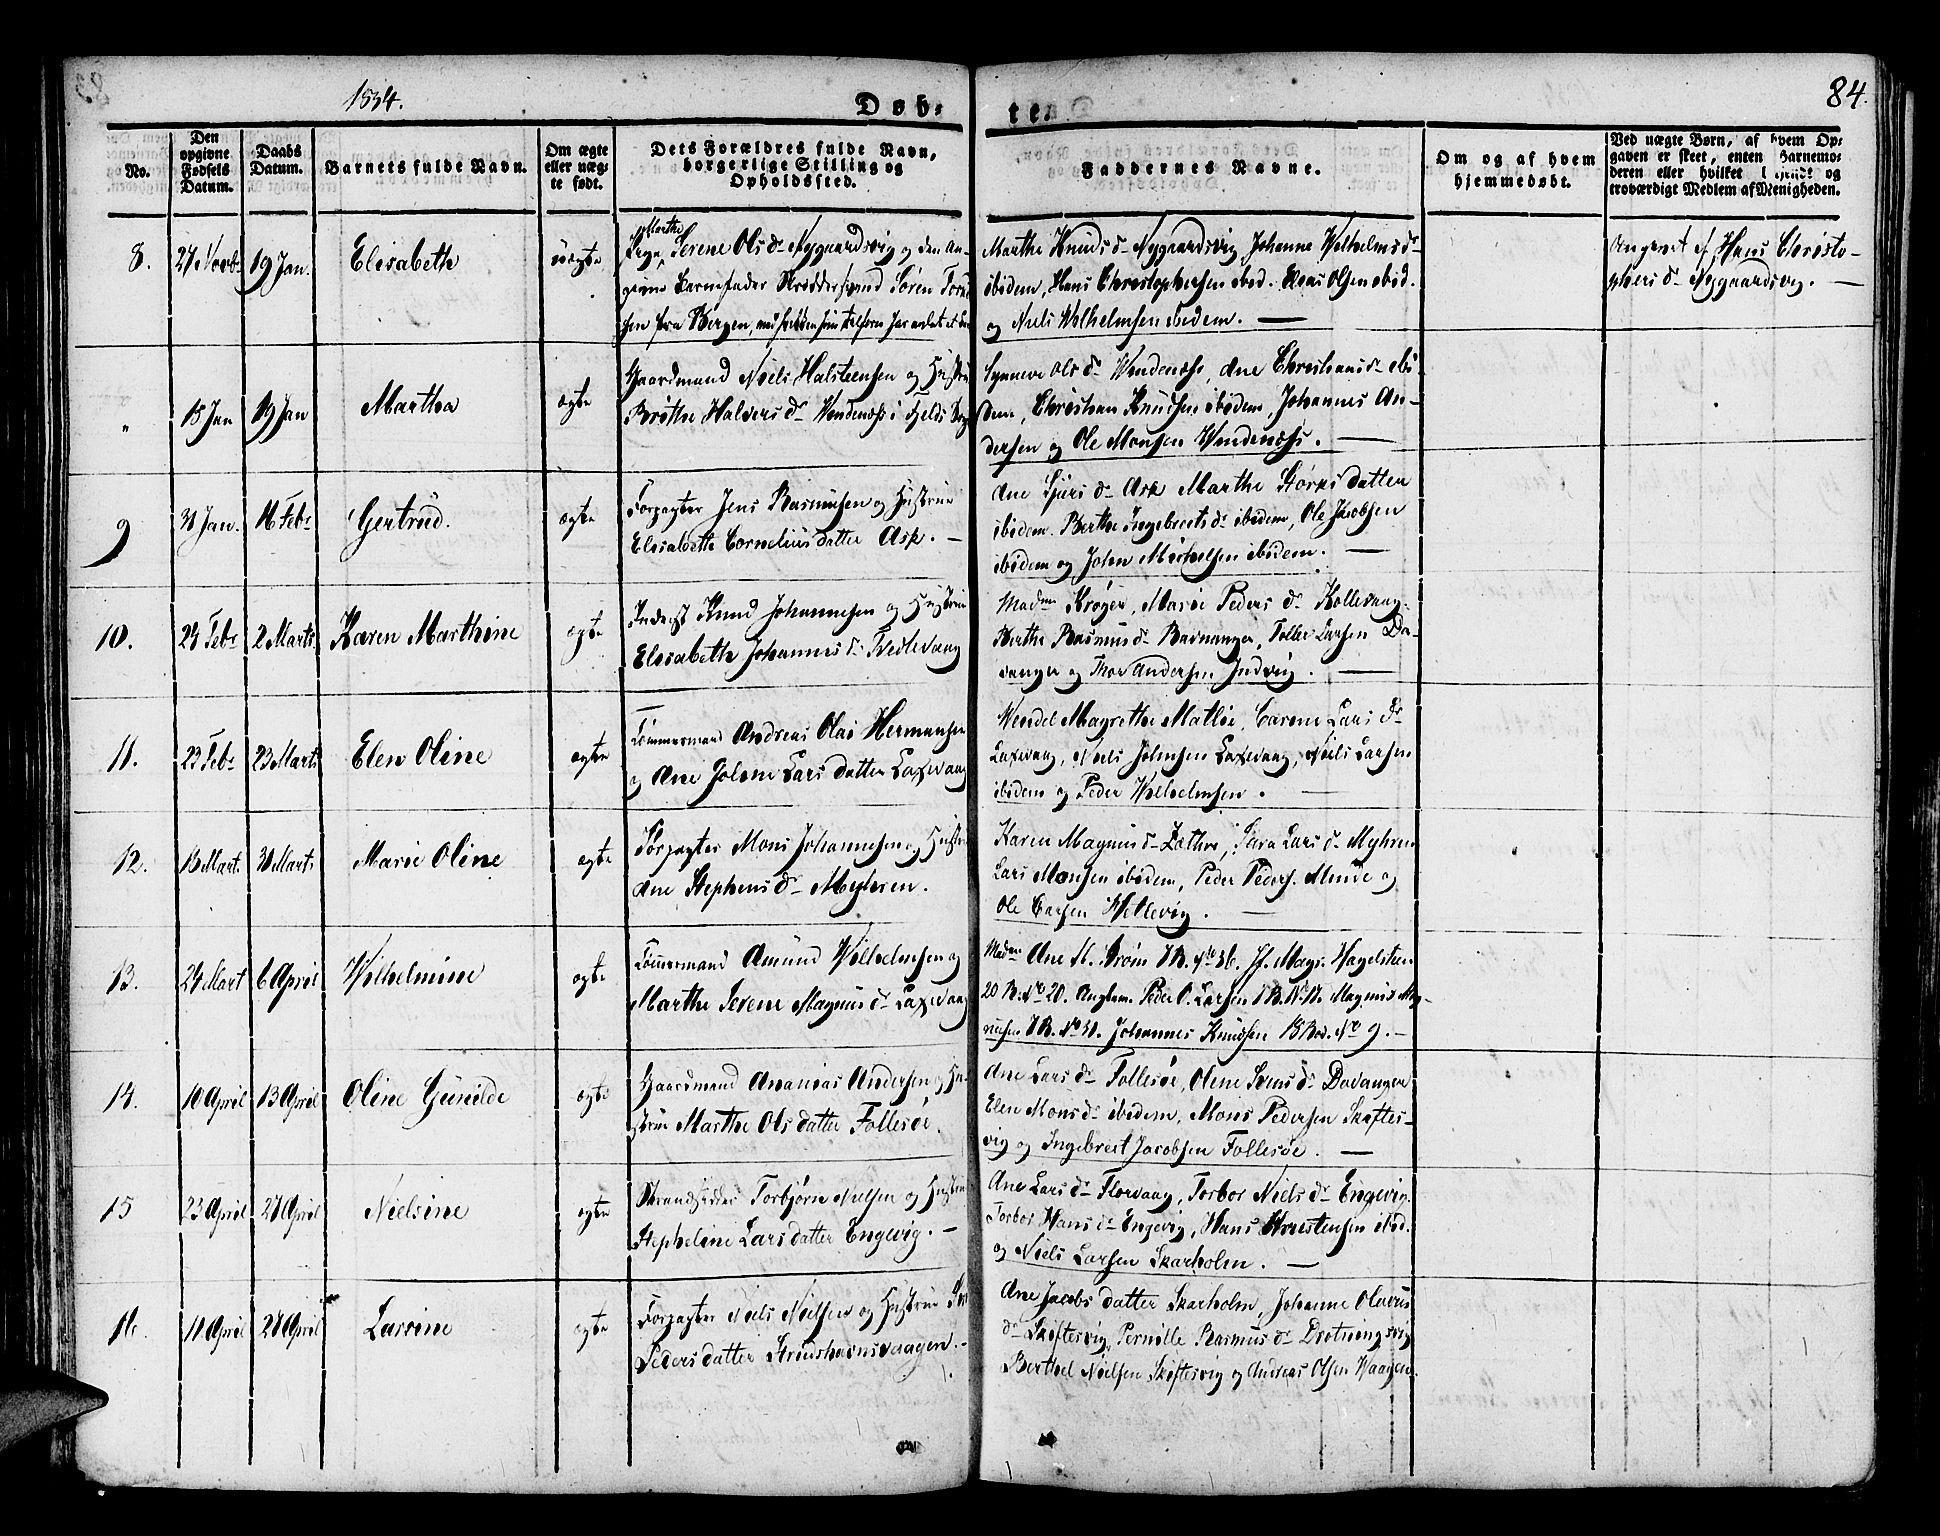 1834.
Døb-
te.
84.
No.
Den opgivne Fødsels Datum.
Daabs Datum.
Barnets fulde Navn.
Om ægte eller uægte født.
Dets Forældres fulde Navn, borgerlige Stilling og Opholdssted.
Faddernes Navne.
Om og af hvem hjemmedøbt.
Ved uægte Børn, af hvem Opgaven er skeet, enten Barnemoderen eller hvilket bekjendt og troværdigt Medlem af Menigheden.
8.
27 Novbr
19 Jan.
Elisabeth
uægte
Marthe
Pige, Serene Ols dr Nygaardsvig og den an-
givne Barnefader Skrædder Søren
sen fra Bergen,
Marthe Knuds dr Nygaardsvig, Johanne Wilhelms dr
ibidem, Hans Christophersen ibid. Elias Olsen ibid.
og Niels Wilhelmsen ibidem. —
Angivet af Hans Christo-
phers dr Nygaardsvig. —
"
15 Jan
19 Jan
Martha
ægte
Gaardmand Niels Halsteensen og Hustru
Brithe Halvers dr Vindenæss i Fjelds
Synneve Ols dr Vindenæss, Ane Christians dr ibi-
dem, Christian Knudsen ibidem, Johannes An-
dersen og Ole Monsen Vindenæss. —
9
31 Jan.
16 Febr
Gertrud.
ægte
Forpagter Jens Rasmusen og Hustrue
Elisabeth Cornelius datter Ask. —
Ane Sjurs dr Ask Marthe Størks datter
ibidem. Berthe Ingebrets dr ibidem, Ole Jacobsen
ibidem og John Michelsen ibidem. —
10.
24 Febr
2 Marts
Karen Marthine
ægte
Inderst Knud Johannesen og Hustrue
Elisabeth Johannes dr Tvedtevaag
Madme Krøger, Marie Peders dr Kollevaag.
Berthe Rasmus dr Ravnanger, Toller Larsen Da-
vanger og Thor Andersen Indvig. —
11.
23 Febr
23 Marts
Elen Oline
ægte
Tømmermand Andreas Olai Hermansen
og Ane Jolene Lars datter Laxevaag
Wendel Magrethe Matløe, Carene Lars dr
Laxevaag, Niels Johnsen Laxevaag, Niels Larsen
ibidem og Peder Wilhelmsen.
12.
13 Mart.
31 Marts
Marie Oline
ægte
Forpagter Mons Johannesen og Hustru
Ane Stephens dr Myhren.
Karen Magnus dr Læthre, Sara Lars dr Myhren
Lars Monsen ibidem, Peder Peders. Minde og
Ole Larsen Hillevig. —
13.
24 Mart
6 April
Wilhelmine
ægte
Tømmermand Amund Wilhelmsen og
Marthe Serene Magnus dr Laxevaag
Madme Ane M. Strøm 7 R. No 36. Jf. Magr. Hagelsteen
20 R. No 20. Peder O. Larsen Magnus Mag-
nusen 7 R. No 31. Johannes Knudsen 18 Rod. No 9. —
14.
10 April
13 April
Oline Gunilde
ægte
Gaardmand Ananias Andersen og Hu-
strue Marthe Ols datter Follesøe.
Ane Lars dr Follesøe, Olene Svens dr Davanger
Elen Mons dr ibidem, Mons Pedersen Skiftes-
vig og Ingebreit Jacobsen Follesøe. —
15
23 April
27 April
Nielsine
ægte
Strandsidder Torbjørn Nielsen og Hustru
Stepheline Lars datter Engevig. —
Ane Lars dr Florvaag, Torbor Niels dr Engevig.
Torbor Hans dr Engevig, Hans Christensen ibid.
og Niels Larsen Skarholm. —
16.
11 April
27 April
Larsine
ægte
Forpagter Niels Nielsen og Hustrue
Peders datter Strushavnsvaagen. —
Ane Jacobs datter Skarholm, Johanne Olavus
dr Skiftesvig, Pernille Rasmus dr Drotningsvig
Berthel Nielsen Skiftesvig og Andreas Olsen Vaagen.